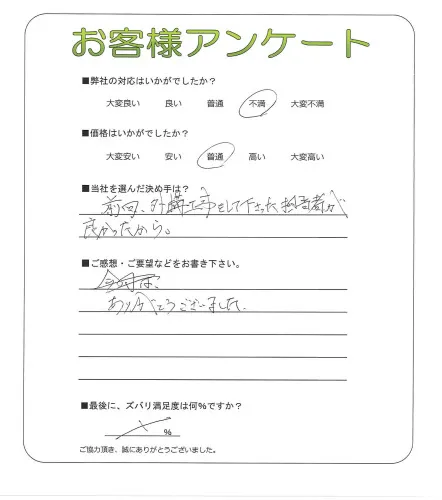 お客様アンケート
■弊社の対応はいかがでしたか？
大変良い 良い 普通 不満 大変不満
■価格はいかがでしたか？
大変安い 安い 普通 高い 大変高い
■当社を選んだ決め手は？
前回、外構工事をして下さった担当者が
良かったから。
■ご感想・ご要望などをお書き下さい。
ありがとうございました。
■最後に、ズバリ満足度は何%ですか？
%
ご協力頂き、誠にありがとうございました。